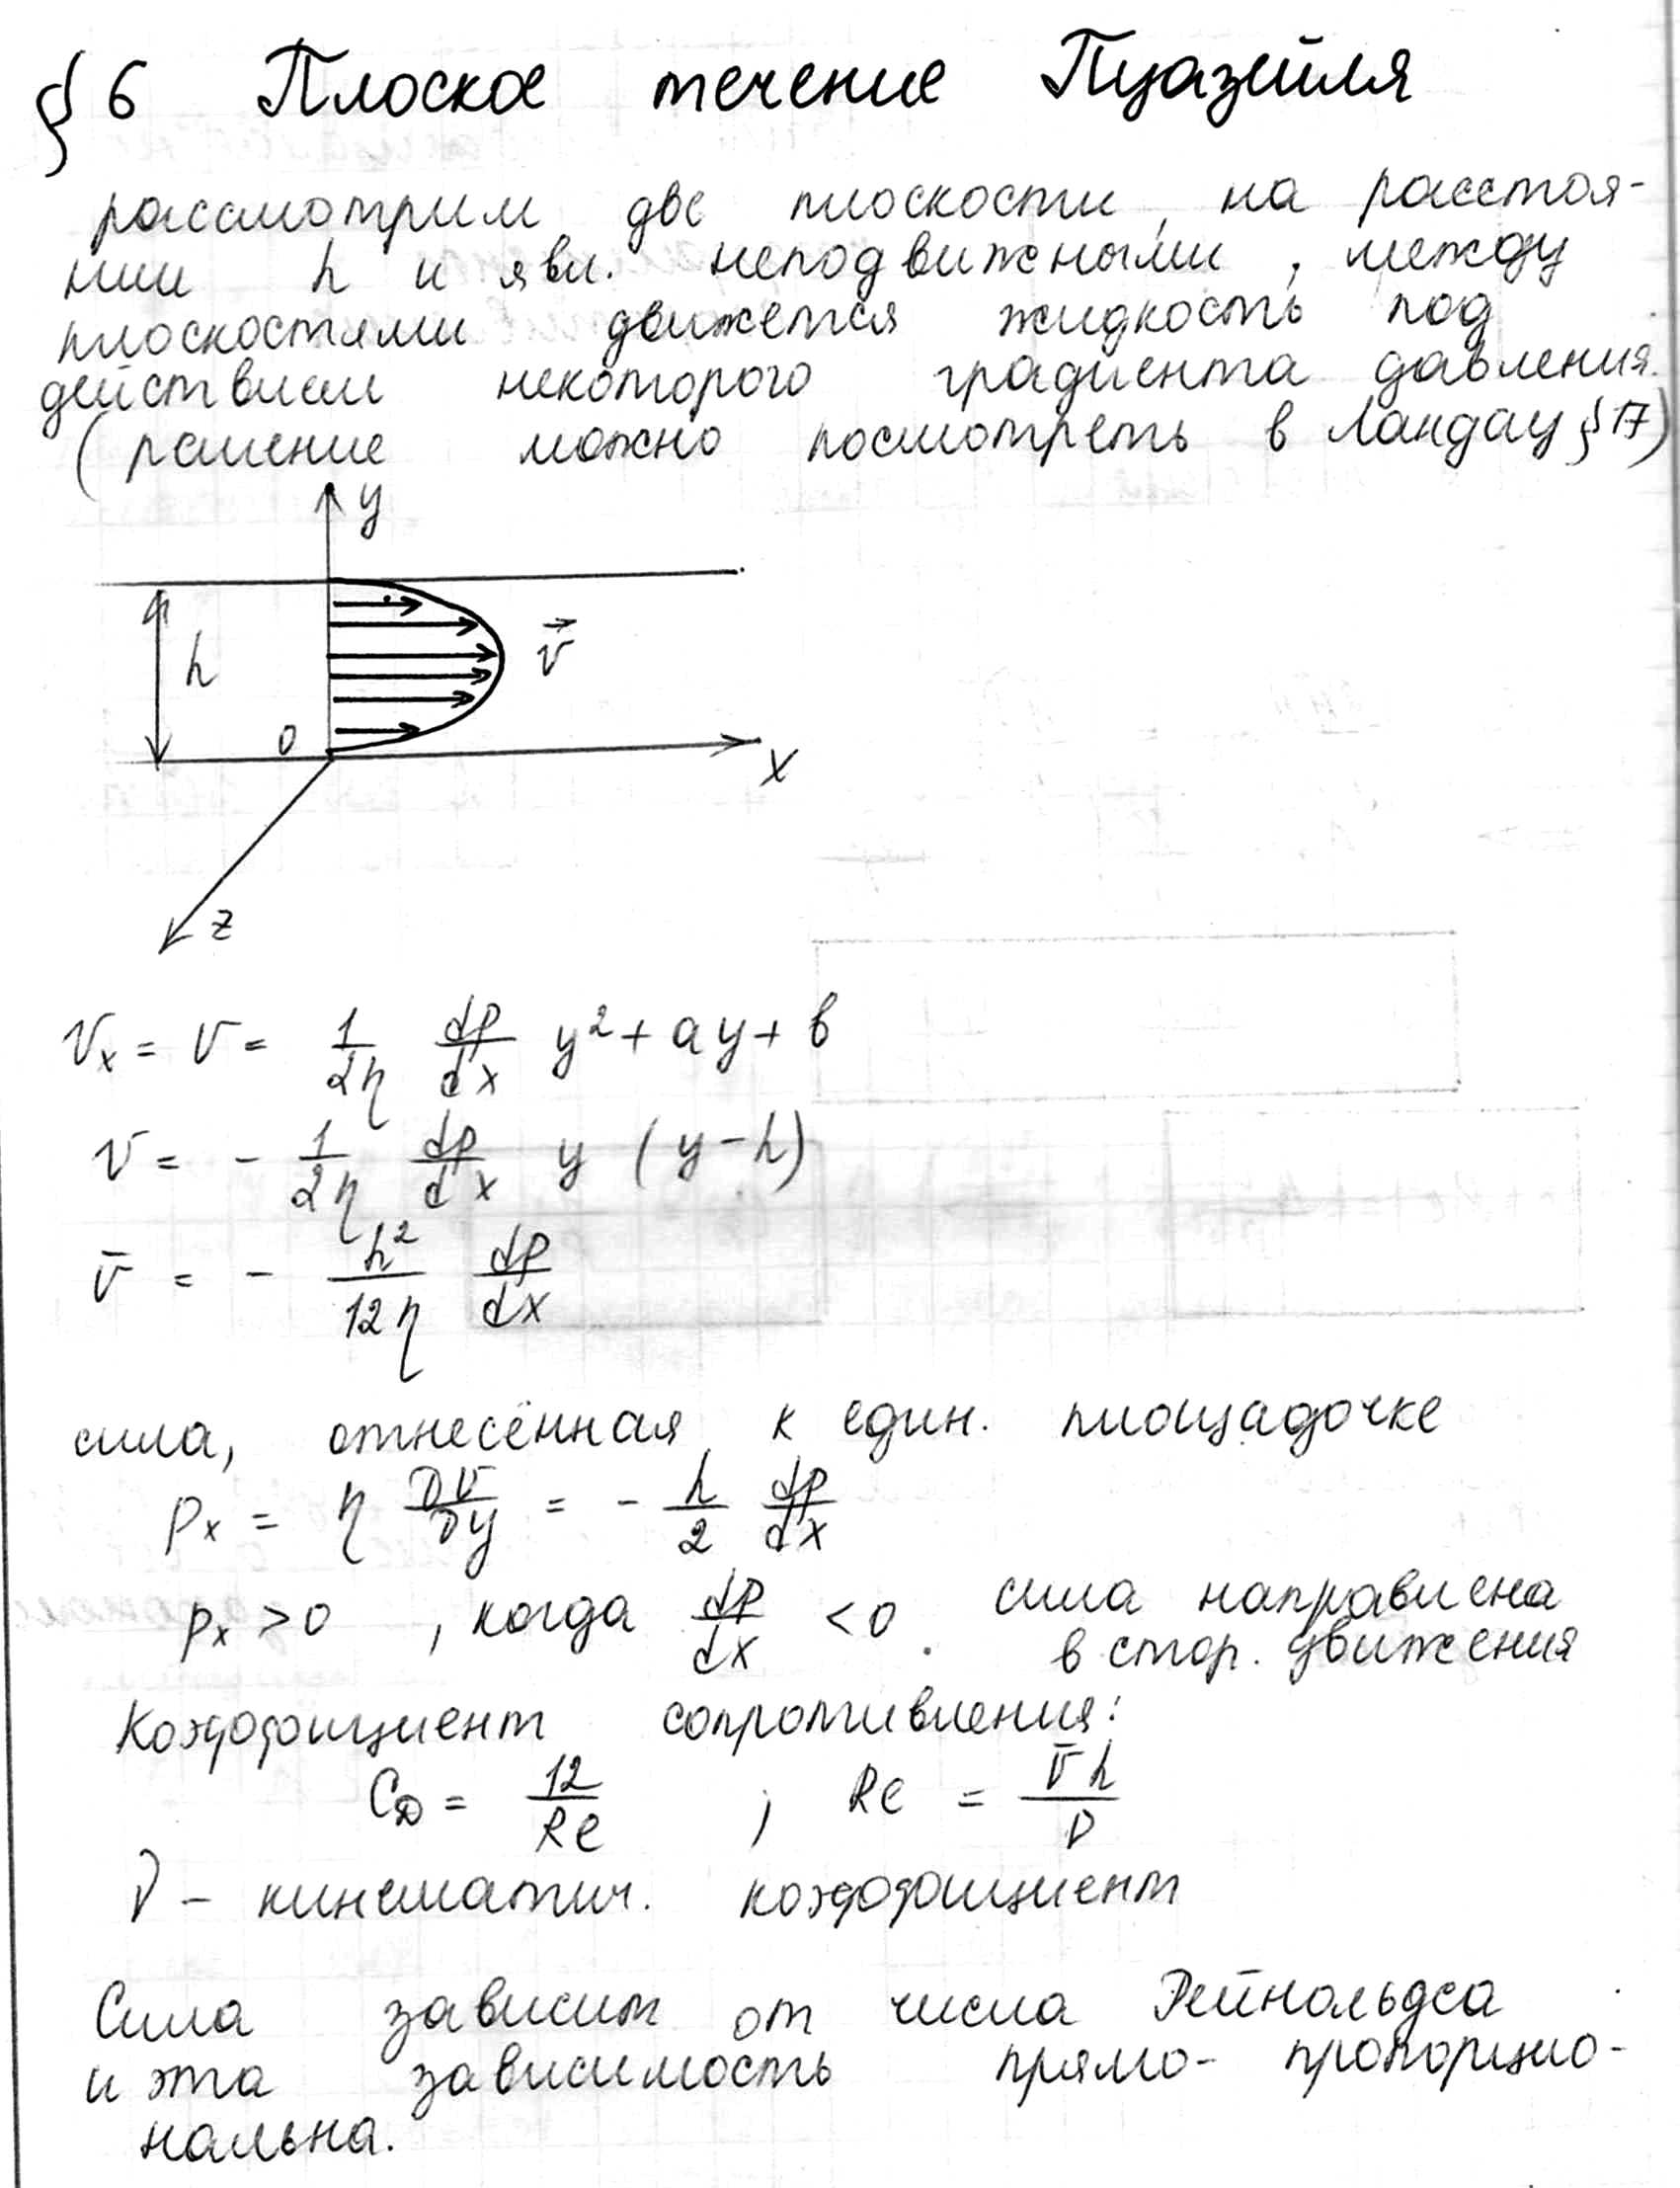 § 6 Плоское течение Пуазейля
рассмотрим две плоскости, на расстоя-
нии h и явл. неподвижными, между
плоскостями движется жидкость под
действием некоторого градиента давления.
(решение можно посмотреть в Ландау §17)
y
h
v⃗
0
x
z
Vx = V = 1/2η dp/dx y² + ay + b
V = - 1/2η dp/dx y (y - h)
v̄ = - h²/12η dp/dx
сила, отнесённая к един. площадочке
px = η ∂v/∂y = - h/2 dp/dx
px > 0, когда dp/dx < 0. сила направлена
в стор. движения
Коэффициент сопротивления:
C_D = 12/Re ; Re = v̄h/ν
ν - кинематич. коэффициент
Сила зависит от числа Рейнольдса
и эта зависимость прямо- пропорцио-
нальна.